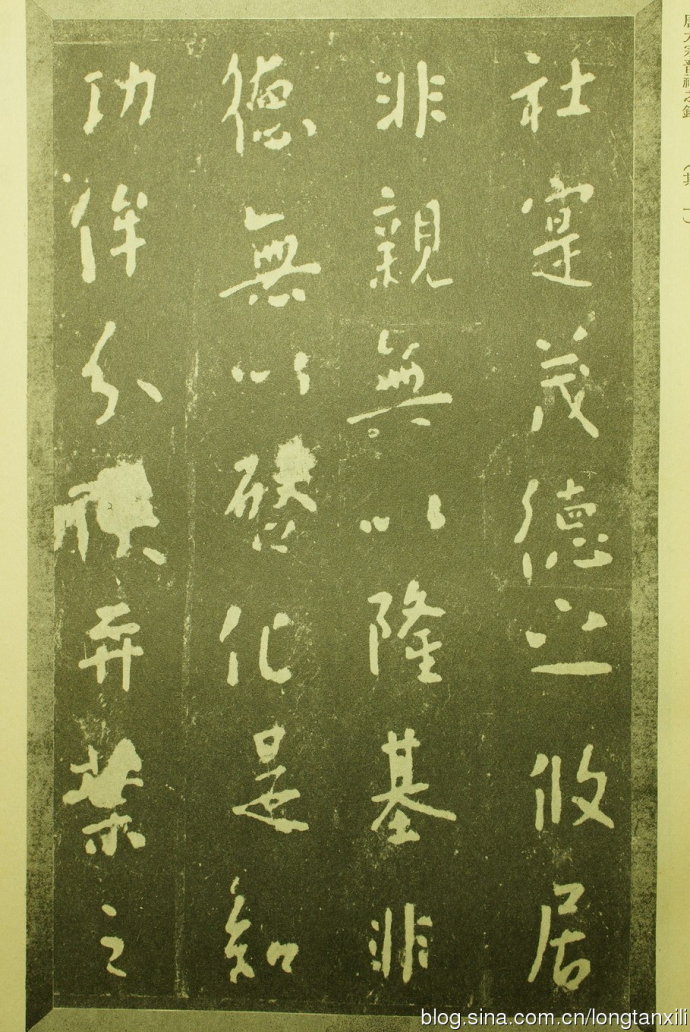 唐太宗晉祠之銘
社寔茂德之攸居
非親無以隆基非
德無以啓化是知
功侔分陝弈葉之
blog.sina.com.cn/longtanxili